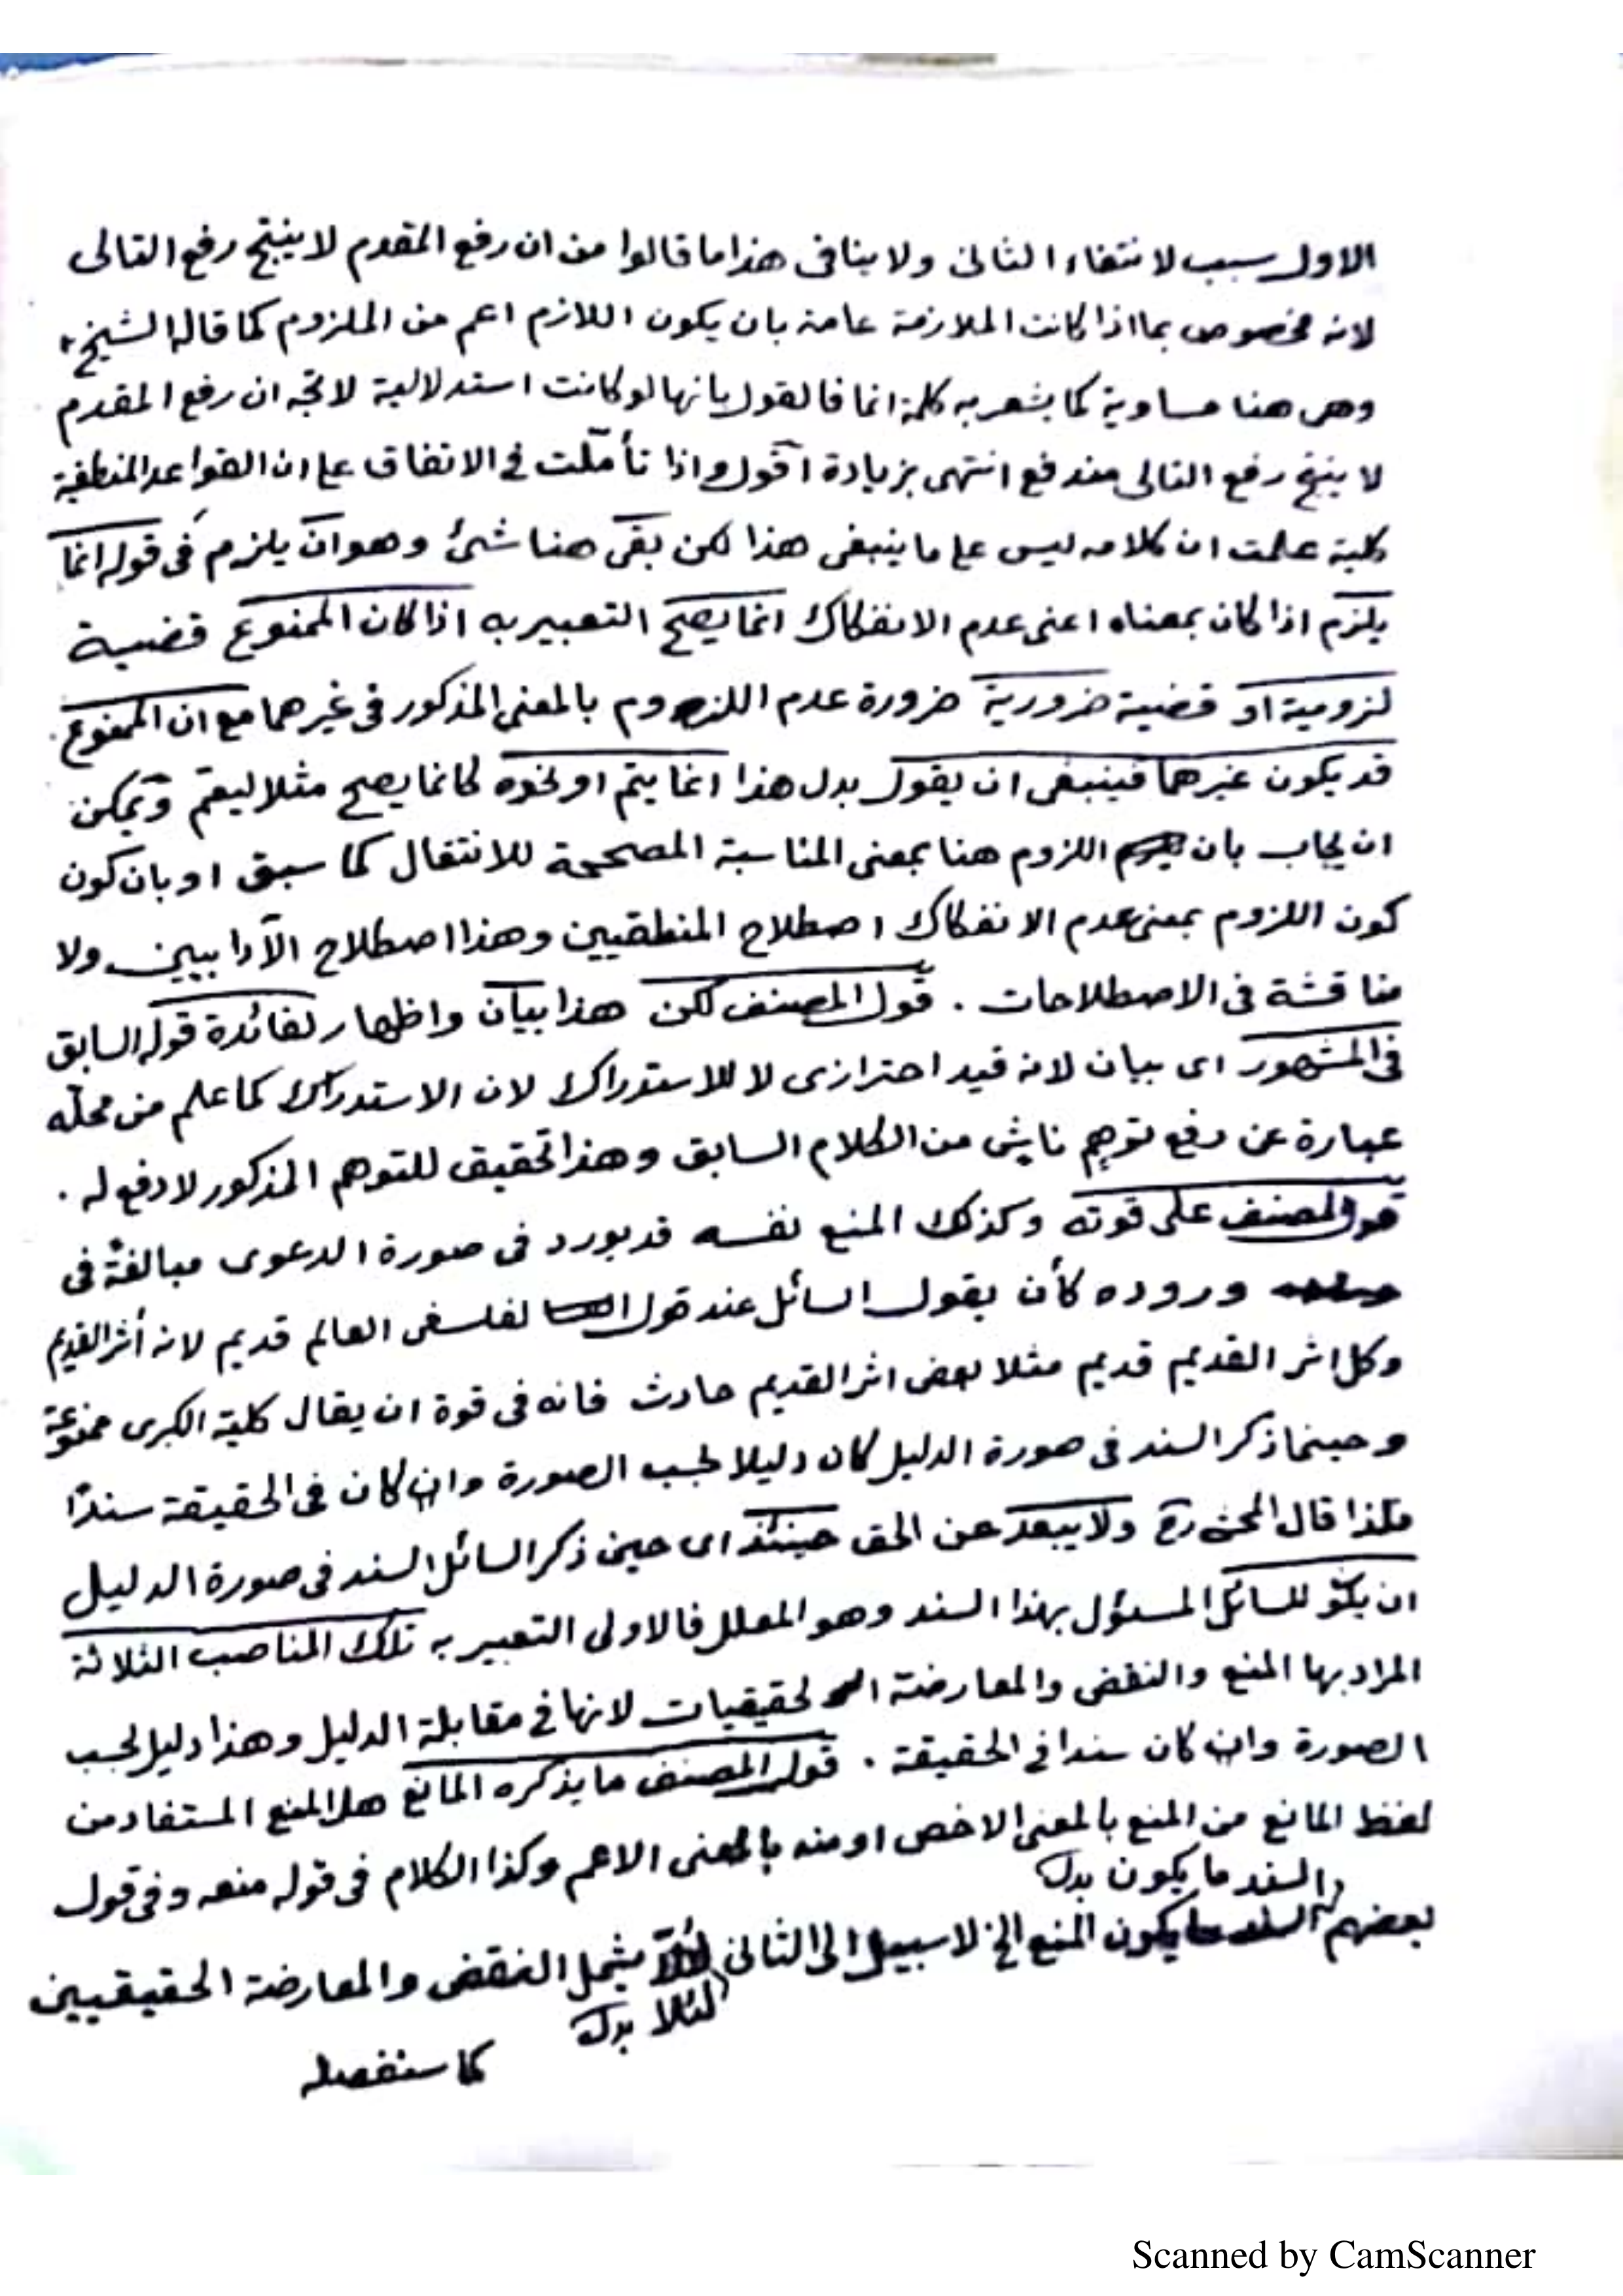 الاول سبب لانتفاء الثانى ولا ينافى هذا ما قالوا من ان رفع المقدم لا ينتج رفع التالى
لانه مخصوص بما اذا كانت الملازمة عامة بان يكون اللازم اعم من الملزوم كما قاله الشيخ
وهى هنا مساوية كما يشعر به كلمة انما فالقول بانها لو كانت استدلالية لاتجه ان رفع المقدم
لا ينتج رفع التالى مندفع انتهى بزيادة اقول واذا تأملت فى الاتفاق على ان القواعد المنطقية
كلية علمت ان كلامه ليس على ما ينبغى هذا لكن بقى هنا شئ وهو ان يلزم فى قوله انما
يلزم اذا كان بمعناه اعنى عدم الانفكاك انما يصح التعبير به اذا كان الممنوع قضية
لزومية او قضية ضرورية ضرورة عدم اللزوم بالمعنى المذكور فى غيرهما مع ان الممنوع
قد يكون غيرهما فينبغى ان يقول بدل هذا انما يتم او نحوه كانما يصح مثلا ليعم ويمكن
ان يجاب بان اللزوم هنا بمعنى المناسبة المصححة للانتقال كما سبق او بان كون
كون اللزوم بمعنى عدم الانفكاك اصطلاح المنطقيين وهذا اصطلاح الآدابيين ولا
مناقشة فى الاصطلاحات . قول المصنف لكن هذا بيان واظهار لفائدة قوله السابق
فى المشهور اى بيان لانه قيد احترازى لا للاستدراك لان الاستدراك كما علم من محله
عبارة عن دفع توهم ناش من الكلام السابق وهذا تحقيق للتوهم المذكور لا دفع له .
قول المصنف على قوته وكذلك المنع نفسه قد يورد فى صورة الدعوى مبالغة فى
وروده كأن يقول السائل عند قول الفلسفى العالم قديم لانه أثر القديم
وكل اثر القديم قديم مثلا بعض اثر القديم حادث فانه فى قوة ان يقال كلية الكبرى ممنوعة
وحينما ذكر السند فى صورة الدليل كان دليلا بحسب الصورة وان كان فى الحقيقة سندًا
فلذا قال المحشى رح ولا يبعد عن الحق حينئذ اى حين ذكر السائل السند فى صورة الدليل
ان يكون للسائل المسئول بهذا السند وهو المعلل فالاولى التعبير به تلك المناصب الثلاثة
المراد بها المنع والنقض والمعارضة الحقيقيات لانها فى مقابلة الدليل وهذا دليل بحسب
الصورة وان كان سندا فى الحقيقة . قول المصنف ما يذكره المانع هل المنع المستفاد من
لفظ المانع من المنع بالمعنى الاخص او منه بالمعنى الاعم وكذا الكلام فى قوله منعه وفى قول
السند ما يكون بدل
بعضهم السند ما يكون المنع الخ لا سبيل الى الثانى لئلا يشمل النقض والمعارضة الحقيقيين
لئلا بدل
كما سنفصله
Scanned by CamScanner